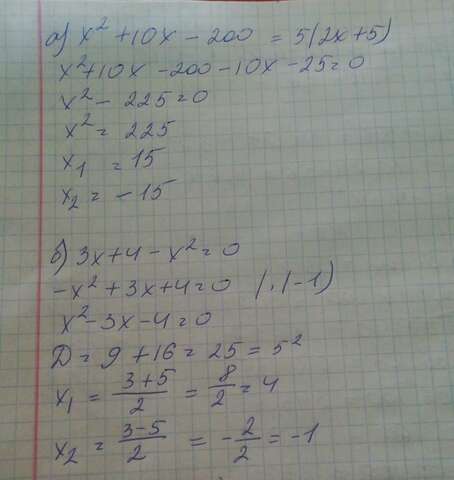 а) x² + 10x − 200 = 5(2x+5)
x² + 10x − 200 − 10x − 25 = 0
x² − 225 = 0
x² = 225
x₁ = 15
x₂ = − 15
б) 3x + 4 − x² = 0
−x² + 3x + 4 = 0 |·(−1)
x² − 3x − 4 = 0
D = 9 + 16 = 25 = 5²
x₁ = (3+5)/2 = 8/2 = 4
x₂ = (3−5)/2 = −2/2 = −1